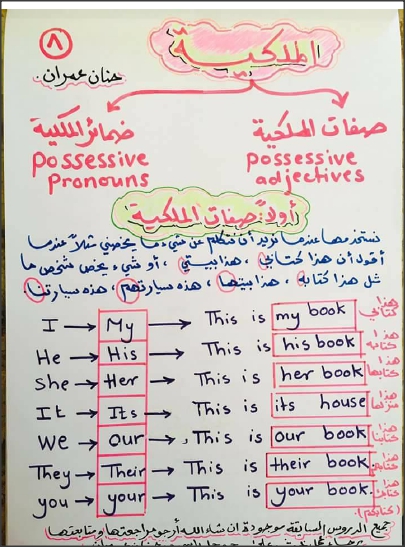 ٨
الملكية
حنان عمران.
صفات الملكية
possessive
adjectives
ضمائر الملكية
possessive
Pronouns
أولاً: صفات الملكية
نستخدمها عندما نريد أن نتكلم عن شيء ما يخصني مثلاً عندما
أقول أن هذا كتابي، هذا بيتي، أو شيء يخص شخص ما
مثل هذا كتابه، هذا بيتها، هذه سيارتهم، هذه سيارتنا.
I → My → This is my book هذا كتابي
He → His → This is his book هذا كتابه
She → Her → This is her book هذا كتابها
It → Its → This is its house هذا منزلها
We → our → This is our book هذا كتابنا
They → Their → This is their book هذا كتابهم
you → your → This is your book. هذا كتابك
(كتابكم)
جميع الدروس السابقة موجودة ان شاء الله أرجو مراجعتها ومتابعتها